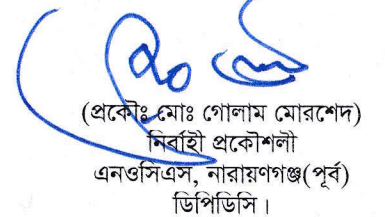 (প্রকৌঃ মোঃ গোলাম মোরশেদ)
নির্বাহী প্রকৌশলী
এনওসিএস, নারায়ণগঞ্জ(পূর্ব)
ডিপিডিসি।